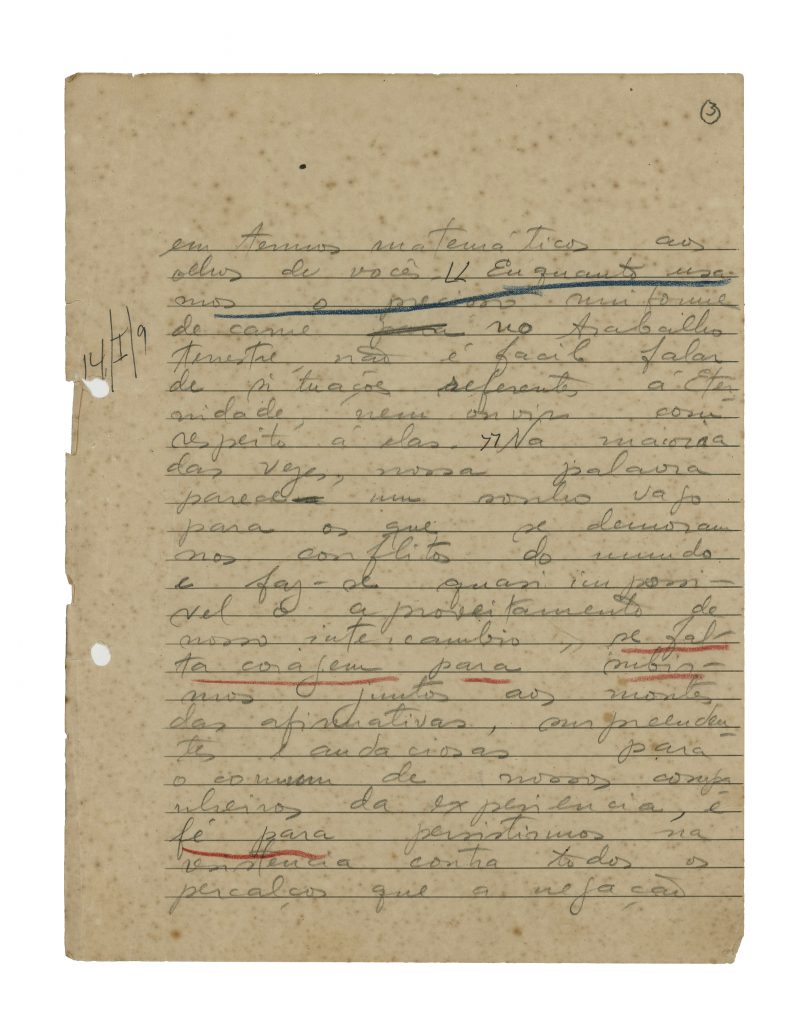 3
em termos matemáticos aos
olhos de vocês. Enquanto usa-
mos o precioso uniforme
de carne no trabalho
terrestre, não é facil falar
de situações referentes á Eter-
nidade, nem ouvir com
respeito á elas. Na maioria
das vezes, nossa palavra
parece um sonho vago
para os que se demoram
nos conflitos do mundo
e faz-se quasi impossi-
vel o aproveitamento de
nosso intercambio se fal-
ta coragem para subir-
mos juntos aos montes
das afirmativas, surpreenden-
tes e audaciosas para
o comum de nossos compa-
nheiros da experiencia, é
fé para persistirmos na
resistencia contra todos os
percalços que a negação
14/I/9